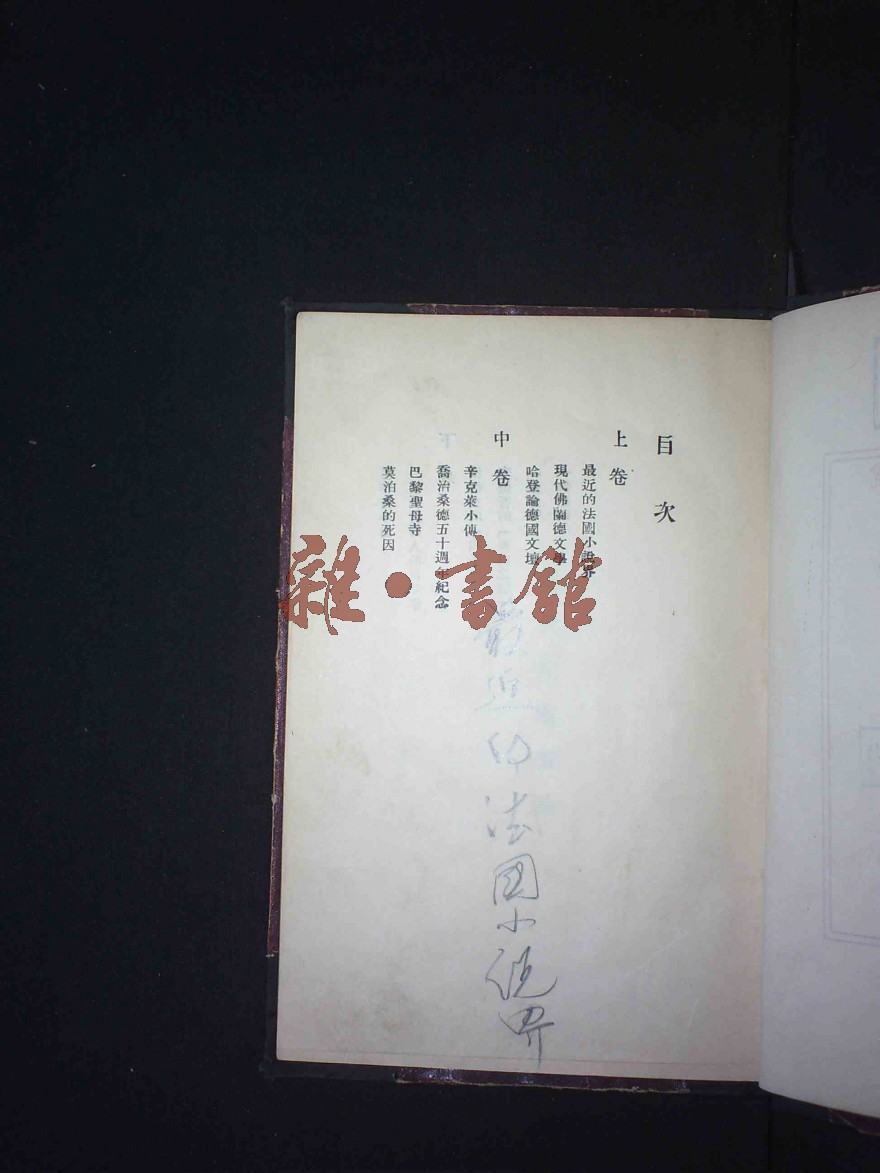 目次
上卷
最近的法國小說界
現代佛蘭德文學
哈登論德國文壇
中卷
辛克萊小傳
喬治桑德五十週年紀念
巴黎聖母寺
莫泊桑的死因
雜·書館
最近的法國小説界